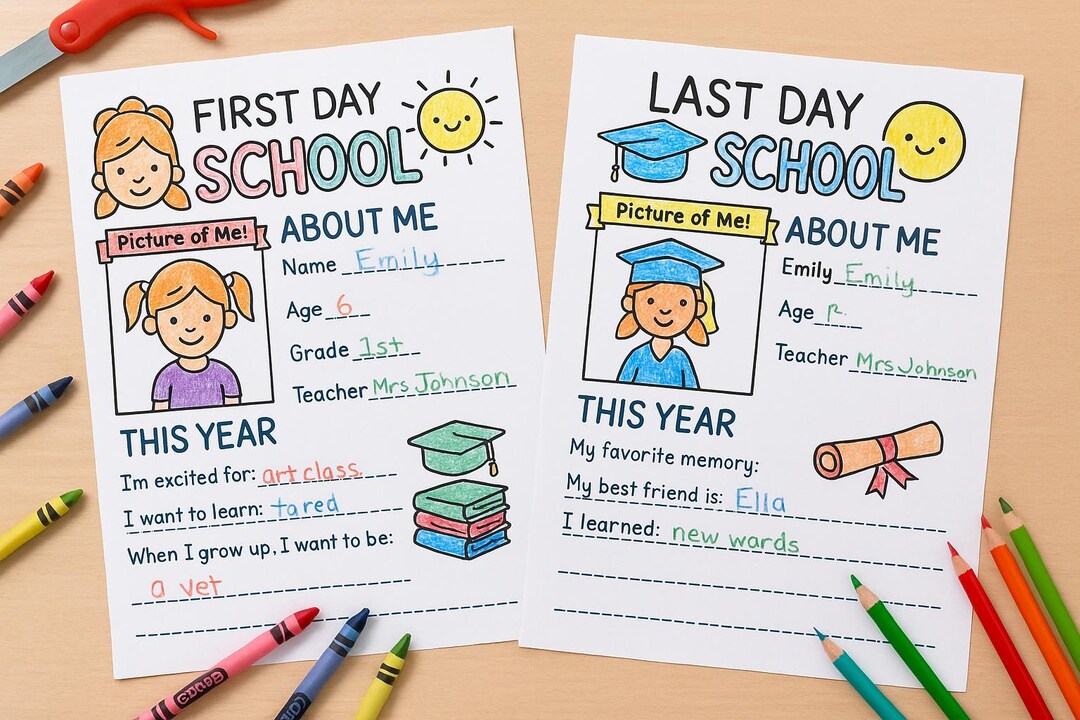 FIRST DAY
SCHOOL
Picture of Me!
ABOUT ME
Name Emily
Age 6
Grade 1st
Teacher Mrs Johnson
THIS YEAR
I'm excited for: art class.
I want to learn: tared
When I grow up, I want to be:
a vet
LAST DAY
SCHOOL
Picture of Me!
ABOUT ME
Emily Emily
Age
Teacher Mrs Johnson
THIS YEAR
My favorite memory:
My best friend is: Ella
I learned: new wards